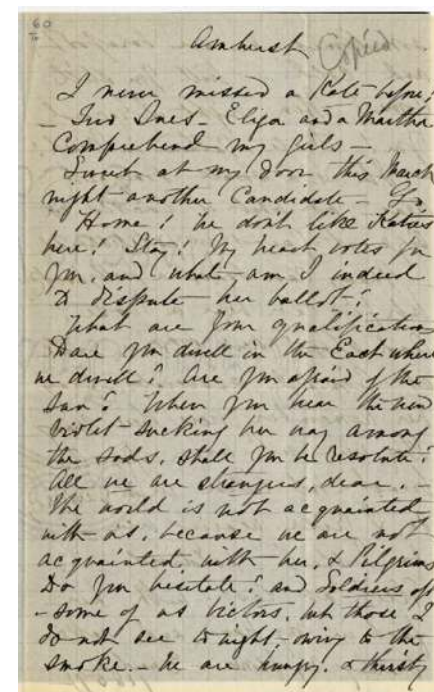 60
Amherst Copied
I never missed a Kate before,
- Two Sues - Eliza and a Martha
Comprehend my girls -
Sweet at my door this March
night another Candidate - Go
Home! We don't like Katies
here! Stay! My heart votes for
you, and what am I indeed
to dispute her ballot?
What are your qualifications
Dare you dwell in the East where
we dwell? Are you afraid of the
Sun? When you hear the new
violet sucking her way among
the sods, shall you be resolute?
All we are strangers, dear. -
The world is not acquainted
with us, because we are not
acquainted with her, & Pilgrims
Do you hesitate? and Soldiers oft
- some of us victors, but those I
do not see to night, owing to the
smoke. - We are hungry, & thirsty